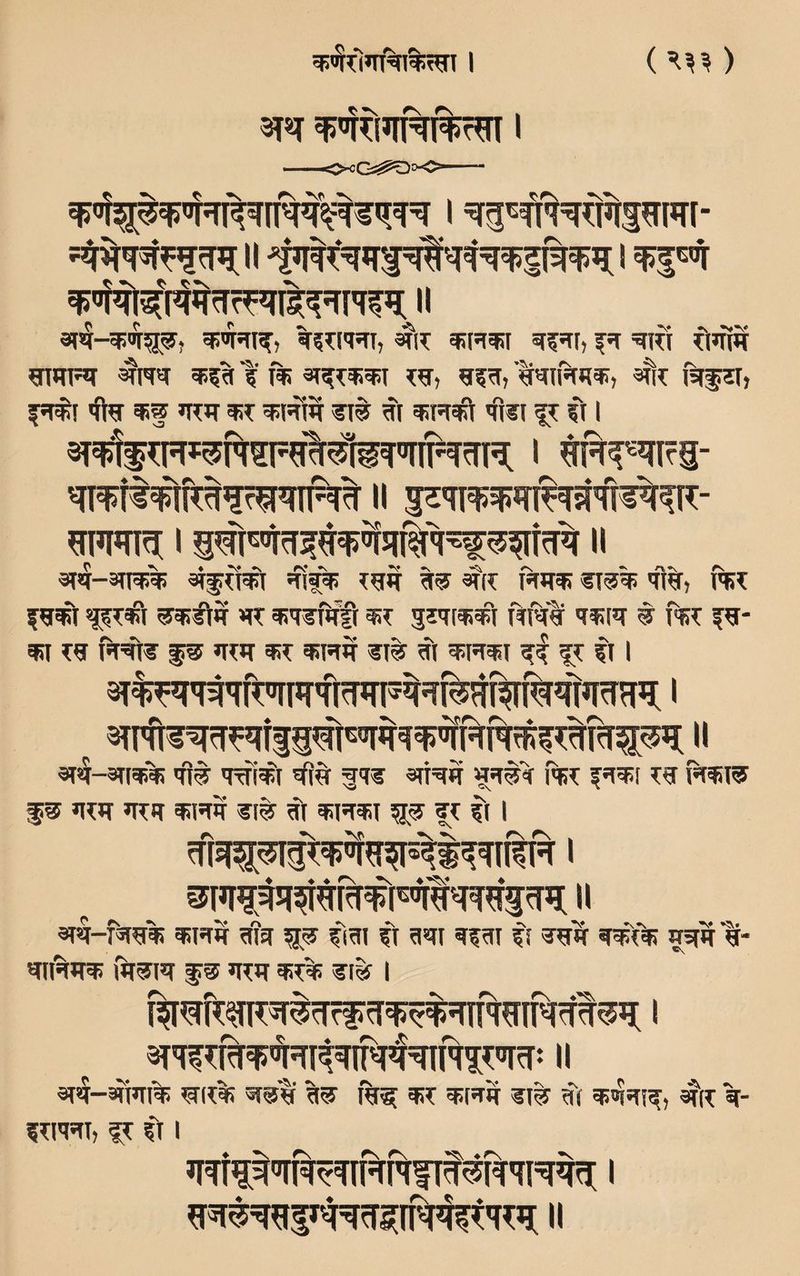 कर्णरोगचिकित्सा । ( २३३ )
अथ कर्णरोगचिकित्सा ।
कर्णशूलेकर्णनादेबाधिर्येक्ष्वेडएवच । चतुर्ष्वपिचरोगेषुसामा-
न्यंभेषजंस्मृतम् ॥ शृंगवेरंचमधुचसैंधवंतैलमेवच । कदुष्णं
कर्णयोर्धार्यमेतत्स्याद्वेदनापहम् ॥
अर्थ–कर्णशूल, कर्णनाद, बहरापना, और कानका बहना, इन चारों रोगोंमें
सामान्य औषध कहते हैं कि अदरकका रस, सहत, सैंधानिमक, और मिठ्ठा,
इनको तेल कछु गरम कर कानोंमें डाले तो कानकी पीडा दूर हो ।
अर्कांकुरानम्लपिष्टान्सतैलाँल्लवणान्वितान् । सन्निदध्यात्स्नु-
ह्याकांडेकोरितेमृत्स्नयान्विते ॥ पुटपाकक्रमात्स्विन्नंपीडयेदार-
सागमात् । सुखोष्णंतद्रसंकर्णेप्रक्षिपेच्छूलशांतये ॥
अर्थ–आकके अंकुरोंको नींबूके रसमें तेल और निमक डालके पीसे, फिर
इसको थूहरकी लकडीमें भर कपरमिट्टी कर पुटपाककी विधिसे पकाय ले फिर इस-
का रस निचोड कुछ गरम कर कानमें डाले तो कानका दर्द दूर हो ।
अर्कस्यपत्रंपरिणामपीतमाज्येनलिप्तंशिखियोगतप्तम् ।
आपीड्यतस्यांबुसुखोष्णमेवकर्णेनिषिक्तंहरतेतिशूलम् ॥
अर्थ–आकके पीले पत्तोंको घीसे चुपड आगमें सेंकलेवे फिर इनका रस निकाल
कुछ गरम गरम कानमें डाले तो कानका शूल दूर हो ।
तीव्रशूलातुरेकर्णेसशब्देक्लेदवाहिनि ।
छागमूत्रंप्रशंसंतिकोष्णंसैंधवसंयुतम् ॥
अर्थ–जिसके कानमें तीव्र शूल होता हो तथा बहता हो उसमें बकरीके मूत्रमें सें-
धानिमक मिलाय कुछ गरम करके डाले ।
शिखरिक्षारजलेतत्कृतकल्केनापिसाधितंतैलम् ।
अपहरतिकर्णनादंबाधिर्यंचापिपूरणतः ॥
अर्थ–ओंगाके खारके जलमें तेल सिद्ध कर कानमें डाले तो कर्णनाद, और ब-
हरापना, दूर हो ।
गवांमूत्रेणबिल्वानिपिष्ट्वातैलंविपाचयेत् ।
सजलंचसदुग्धंचतद्बाधिर्यहरंपरम् ॥